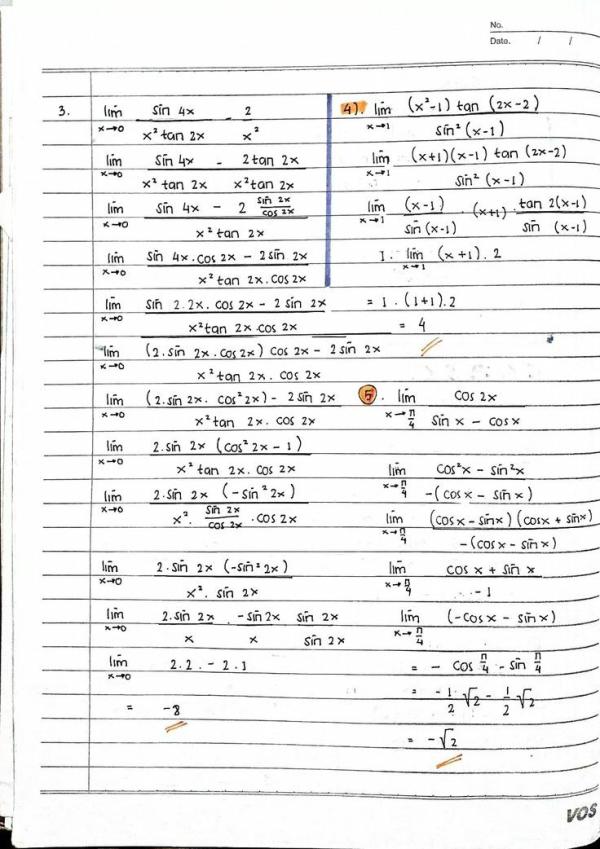 No.
Date. / /
3. lim x→0 sin 4x / x² tan 2x - 2 / x²
lim x→0 sin 4x / x² tan 2x - 2 tan 2x / x² tan 2x
lim x→0 (sin 4x - 2 sin 2x / cos 2x) / x² tan 2x
lim x→0 (sin 4x . cos 2x - 2 sin 2x) / x² tan 2x . cos 2x
lim x→0 (sin 2.2x . cos 2x - 2 sin 2x) / x² tan 2x . cos 2x
lim x→0 ((2.sin 2x . cos 2x) cos 2x - 2 sin 2x) / x² tan 2x . cos 2x
lim x→0 ((2.sin 2x . cos² 2x) - 2 sin 2x) / x² tan 2x . cos 2x
lim x→0 2.sin 2x (cos² 2x - 1) / x² tan 2x . cos 2x
lim x→0 2.sin 2x (-sin² 2x) / x² . sin 2x / cos 2x . cos 2x
lim x→0 2.sin 2x (-sin² 2x) / x² . sin 2x
lim x→0 2.sin 2x / x -sin 2x / x sin 2x / sin 2x
lim x→0 2.2. -2.1
= -8
4). lim x→1 (x²-1) tan (2x-2) / sin² (x-1)
lim x→1 (x+1)(x-1) tan (2x-2) / sin² (x-1)
lim x→1 (x-1) / sin (x-1) . (x+1) . tan 2(x-1) / sin (x-1)
1. lim x→1 (x+1) . 2
= 1 . (1+1) . 2
= 4
5. lim x→π/4 cos 2x / sin x - cos x
lim x→π/4 cos²x - sin²x / -(cos x - sin x)
lim x→π/4 (cos x - sin x)(cos x + sin x) / -(cos x - sin x)
lim x→π/4 cos x + sin x / -1
lim x→π/4 (-cos x - sin x)
= - cos π/4 - sin π/4
= - 1/2 √2 - 1/2 √2
= -√2
VOS